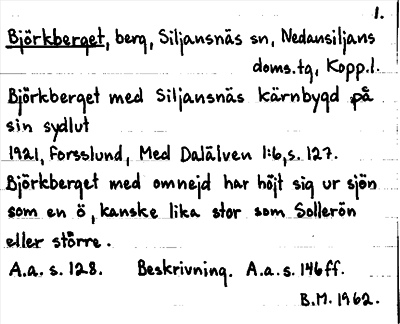 1.
Björkberget, berg, Siljansnäs sn, Nedansiljans
doms.tg, Kopp.l.
Björkberget med Siljansnäs kärnbygd på
sin sydlut
1921, Forsslund, Med Dalälven 1:6, s. 127.
Björkberget med omnejd har höjt sig ur sjön
som en ö, kanske lika stor som Sollerön
eller större.
A.a. s. 128. Beskrivning. A.a. s. 146 ff.
B.M. 1962.